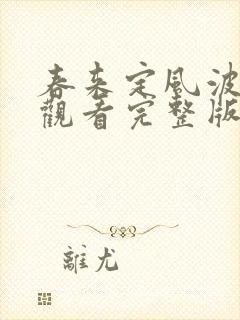 春来定風波
觀看完整版
離尤